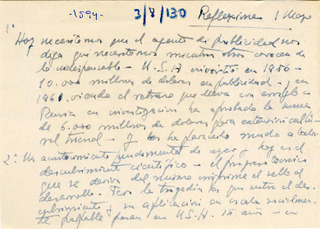 -1594-
3/8/130
Reflexiones 1 Mayo
1º
Hoy necesitamos que el agente de publicidad nos
diga que necesitamos mientras otros carecen de
lo indispensable - U.S.A invirtió en 1956 -
10.000 millones de dolares en publicidad - y en
1961, viendo el retraso que lleva con arreglo a
Rusia en investigación ha aprobado la suma
de 6.000 millones de dolares para
- y los ha parecido mucho a todos
2º Un acontecimiento fundamental de ayer y hoy es el
descubrimiento científico - el progreso tecnico
que se deriva del mismo imprime el sello al
desarrollo. Pero la tragedia es que entre el des-
cubrimiento y su aplicación en escala
pasan en U.S.A. 15 años - en